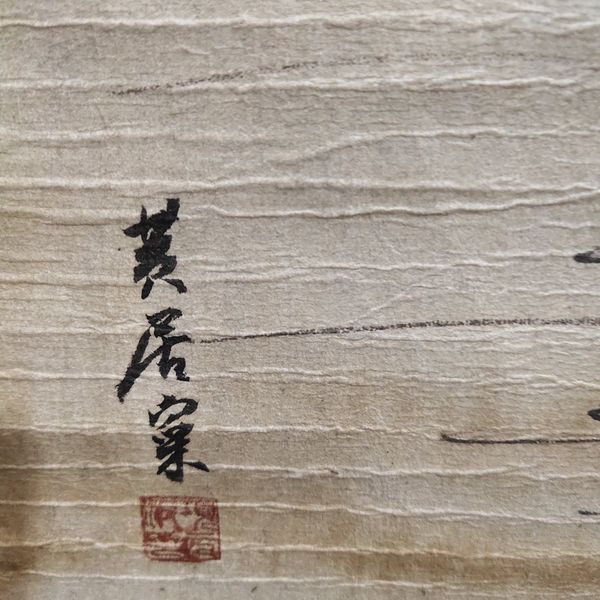 黄居寀